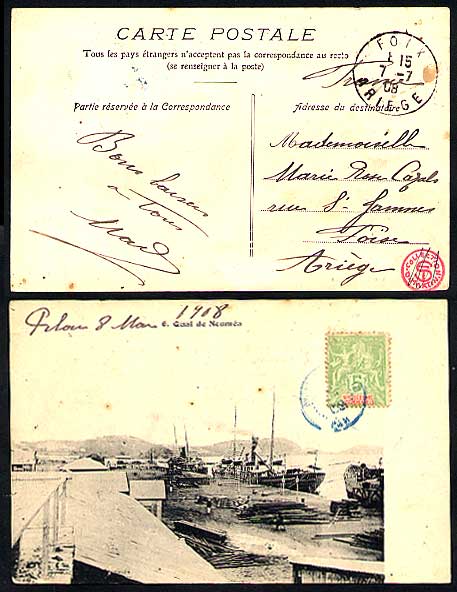 CARTE POSTALE
Tous les pays étrangers n'acceptent pas la correspondance au recto
(se renseigner à la poste)
FOIX
15
7 -7
08
ARIEGE
France
Partie réservée à la Correspondance
Adresse du destinataire
Bons baisers
à Tous
Mademoiselle
Marie Rose Cazals
rue St Jammes
Foix
Ariège
8 Mai 1908
6. Quai de Nouméa
5